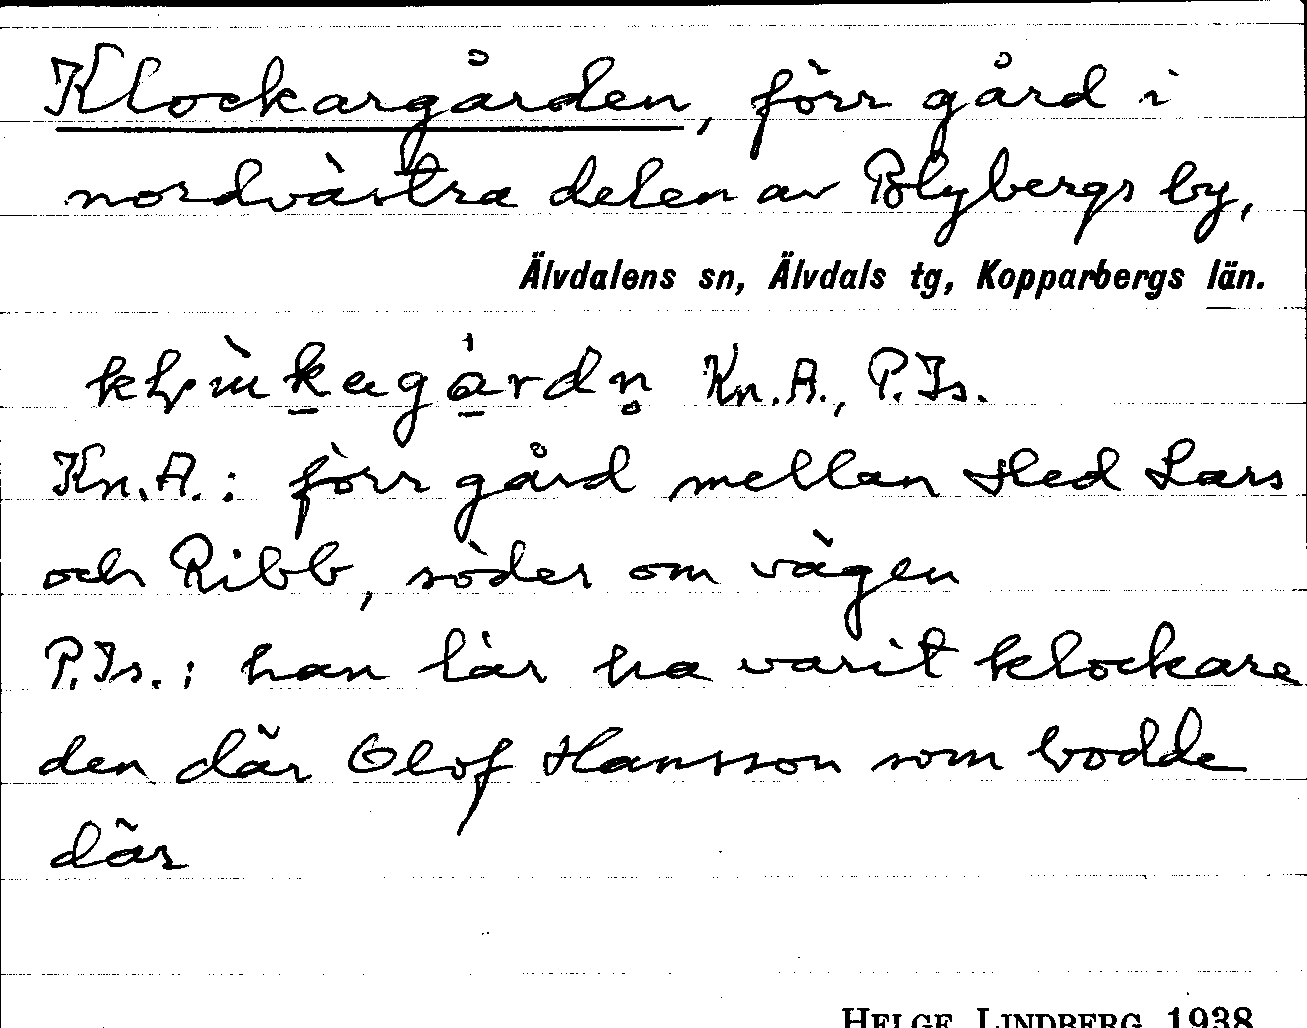 Klockargården, förr gård i
nordvästra delen av Blybergs by,
Älvdalens sn, Älvdals tg, Kopparbergs län.
Kn.A., P.Is.
Kn.A.: förr gård mellan Hed Lars
och Ribb, söder om vägen
P.Is.: han lär ha varit klockare
den där Olof Hansson som bodde
där
HELGE LINDBERG 1938